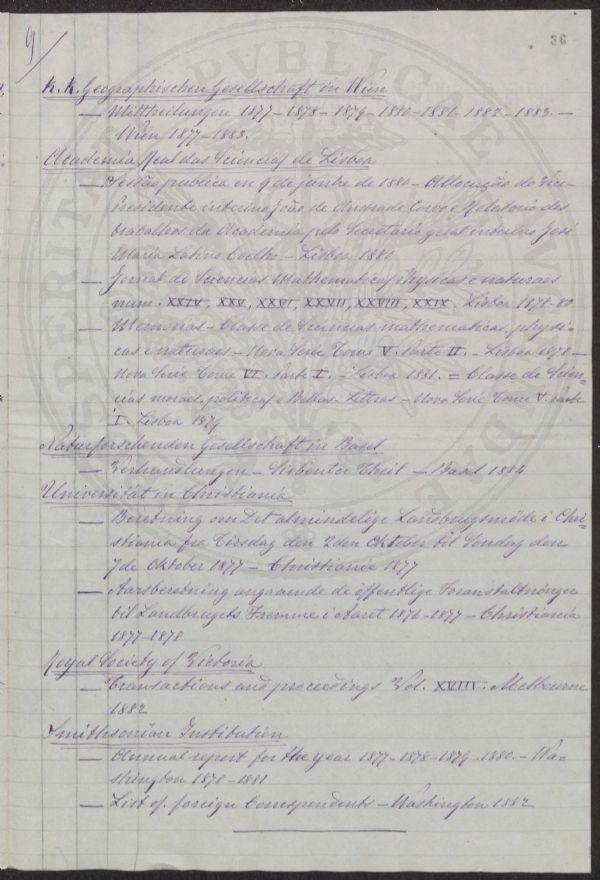 9/
36
K. K. Geographischen Gesellschaft in Wien
— Mittheilungen 1877 - 1878 - 1879 - 1880 - 1881 - 1882 - 1883. —
Wien 1877-1883.
Academia Real das Sciencias de Lisboa
— Sessão publica en 9 de junho de 1880 - Allocução do Vice-
Presidente interino João de Andrade Corvo e Relatorio dos
trabalhos da Academia pelo Secretario geral interino José
Maria Latino Coelho - Lisboa 1880
— Jornal de Sciencias Mathematicas Physicas e naturaes
num. XXIV, XXV, XXVI, XXVII, XXVIII, XXIX. Lisboa 1878-80
— Memorias - Classe de Sciencias mathematicas, physi-
cas e naturaes - Nova Serie Tomo V. Parte II. - Lisboa 1878 —
Nova Serie Tomo VI. Parte I. - Lisboa 1881. = Classe de Scien-
cias moraes, politicas e Bellas-Lettras - Nova Serie Tomo V. Parte
I. Lisboa 1879
Naturforschenden Gesellschaft in Basel
— Verhandlungen - Siebenter Theil - Basel 1884
Universität in Christiania
— Beretning om Det almindelige Landbrugsmöde i Chri-
stiania fra Tirsdag den 2den Oktober til Söndag den
7de Oktober 1877 - Christiania 1877
— Aarsberetning angaaende de öffentlige Foranstaltninger
til Landbrugets Fremme i Aaret 1876-1877 - Christiania
1877-1878
Royal Society of Victoria
— Transactions and proceedings Vol. XVIII. Melbourne
1882
Smithsonian Institution
— Annual report for the year 1877 - 1878 - 1879 - 1880. - Wa-
shington 1878-1881
— List of foreign Correspondents - Washington 1882